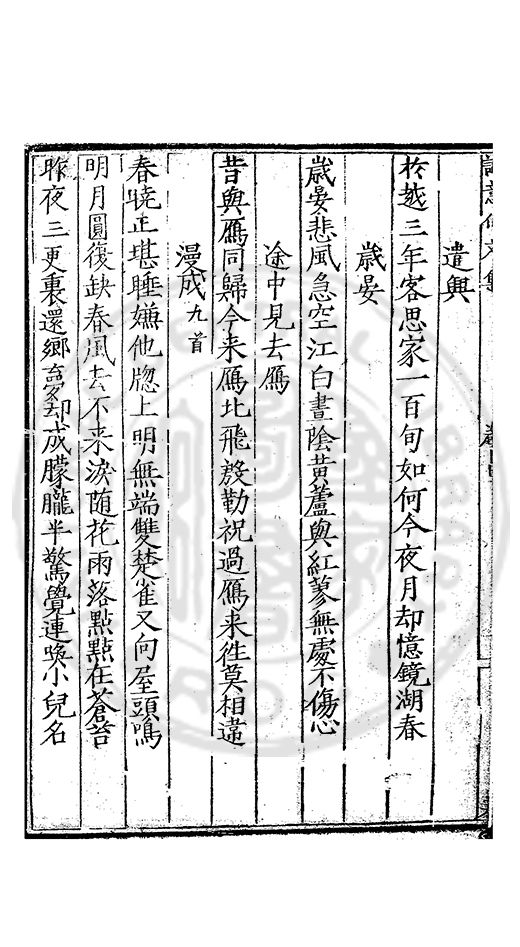 遣興
於越三年客思家一百旬如何今夜月却憶鏡湖春
歲晏
歲晏悲風急空江白晝陰黃蘆與紅蓼無處不傷心
途中見去鴈
昔與鴈同歸今来鴈北飛殷勤祝過鴈来徃莫相違
漫成九首
春曉正堪睡嫌他牎上明無端雙楚雀又向屋頭鳴
明月圓復缺春風去不来淚随花雨落點點在蒼苔
昨夜三更裏還鄉夢却成朦朧半驚覺連喚小兒名